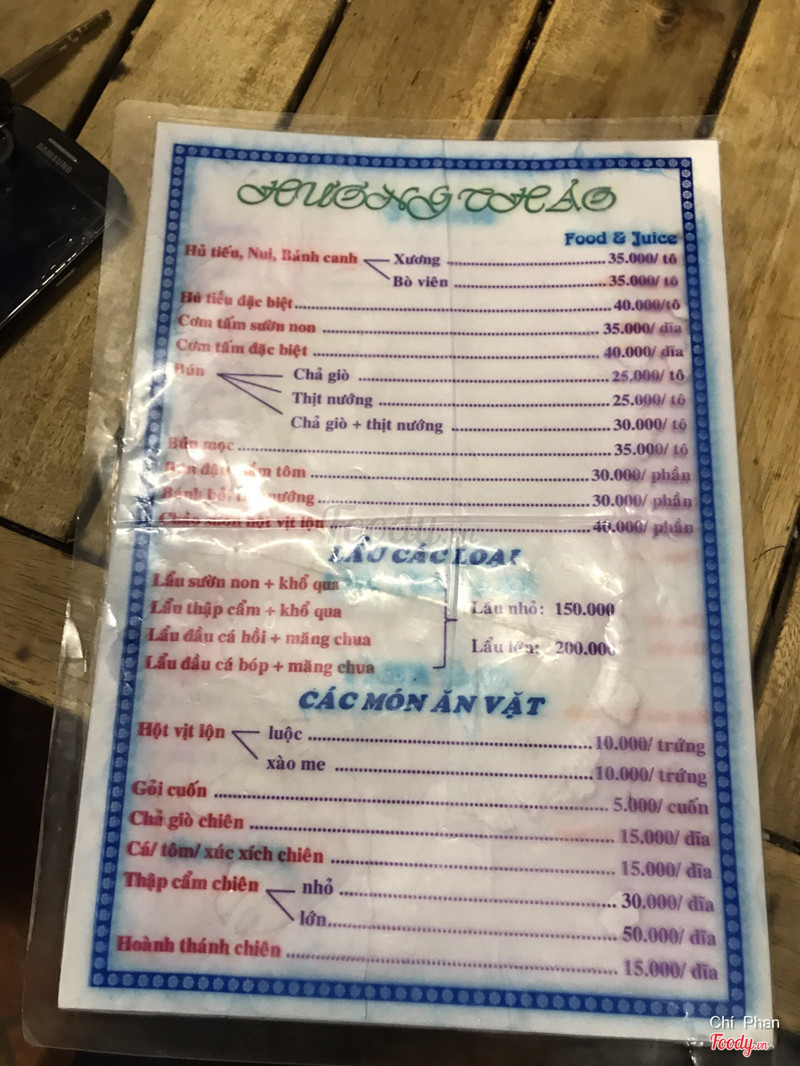 SAMSUNG
HƯƠNG THẢO
Food & Juice
Hủ tiếu, Nui, Bánh canh Xương ........ 35.000/ tô
Bò viên ........ 35.000/ tô
Hủ tiếu đặc biệt ........ 40.000/tô
Cơm tấm sườn non ........ 35.000/ dĩa
Cơm tấm đặc biệt ........ 40.000/ dĩa
Bún Chả giò ........ 25.000/ tô
Thịt nướng ........ 25.000/ tô
Chả giò + thịt nướng ........ 30.000/ tô
Bún mọc ........ 35.000/ tô
Bún đậu mắm tôm ........ 30.000/ phần
Bánh hỏi thịt nướng ........ 30.000/ phần
Cháo sườn hột vịt lộn ........ 40.000/ phần
Foody.vn
LẨU CÁC LOẠI
Lẩu sườn non + khổ qua
Lẩu thập cẩm + khổ qua
Lẩu đầu cá hồi + măng chua
Lẩu đầu cá bóp + măng chua
Lẩu nhỏ: 150.000
Lẩu lớn: 200.000
CÁC MÓN ĂN VẶT
Hột vịt lộn luộc ........ 10.000/ trứng
xào me ........ 10.000/ trứng
Gỏi cuốn ........ 5.000/ cuốn
Chả giò chiên ........ 15.000/ dĩa
Cá/ tôm/ xúc xích chiên ........ 15.000/ dĩa
Thập cẩm chiên nhỏ ........ 30.000/ dĩa
lớn ........ 50.000/ dĩa
Hoành thánh chiên ........ 15.000/ dĩa
Chí Phan
Foody.vn